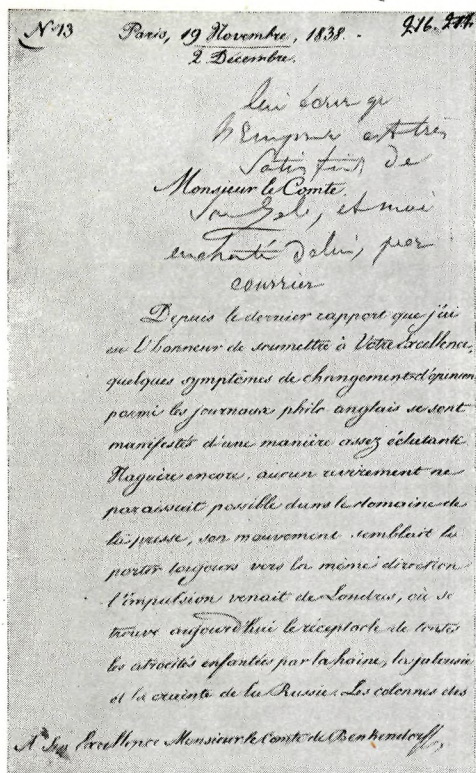 No 13 Paris, 19 Novembre, 1838. - 216. 217.
2 Décembre.
lui écrire qe
l'Empreur est très
satisfait de
Monsieur le Comte.
son Zele, et moi
enchanté de lui, par
courrier
Depuis le dernier rapport que j'ai
eu l'honneur de soumettre à Votre Excellence,
quelques symptômes de changement d'opinion
parmi les journaux philo anglais se sont
manifestés d'une manière assez éclatante
Naguère encore, aucun revirement ne
paraissait possible dans le domaine de
la presse, son mouvement semblait la
porter toujours vers la même direction
l'impulsion venait de Londres, où se
trouve aujourd'hui le réceptacle de toutes
les atrocités enfantées par la haine, la jalousie
et la crainte de la Russie. Les colonnes des
A Son Excellence Monsieur le Comte de Benkendorff,